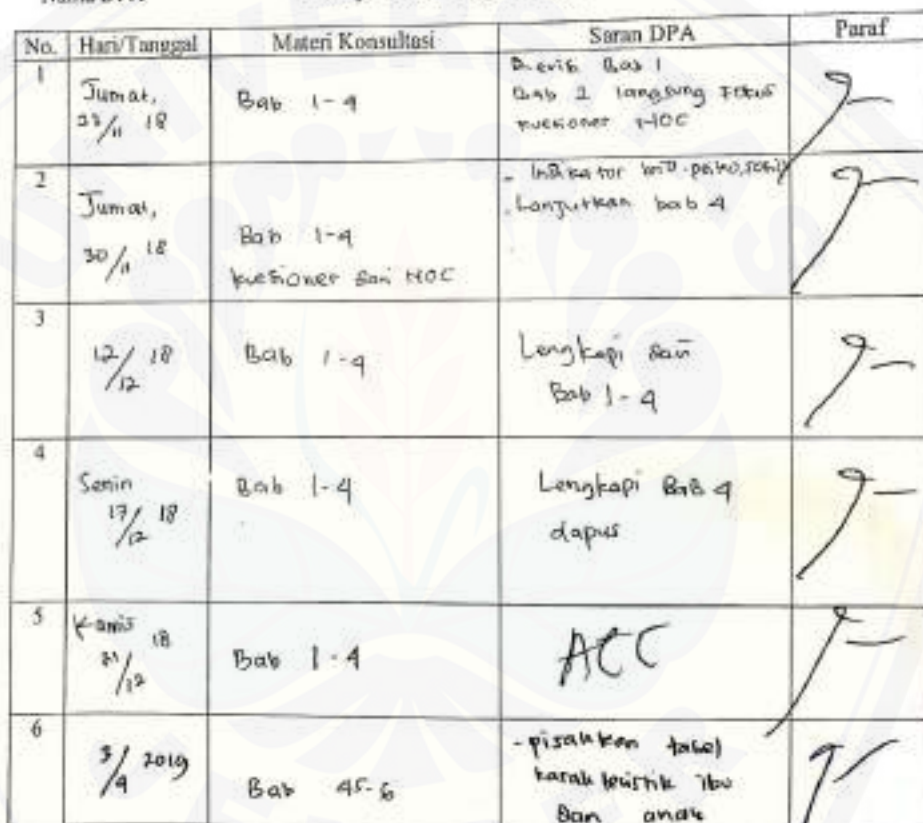 No. Hari/Tanggal Materi Konsultasi Saran DPA Paraf
1
Jumat,
/11 18
Bab 1-4
Bab 1
Bab 2 langsung Fokus
kuesioner HOC
2
Jumat,
30/11 18
Bab 1-4
kuesioner dari HOC
- Indikator
- Lanjutkan bab 4
3
12/12 18
Bab 1-4
Lengkapi dari
Bab 1-4
4
Senin
17/12 18
Bab 1-4
Lengkapi BAB 4
dapus
5
Kamis
/12 18
Bab 1-4
ACC
6
3/4 2019
Bab 45-6
- pisahkan tabel
karakteristik ibu
dan anak